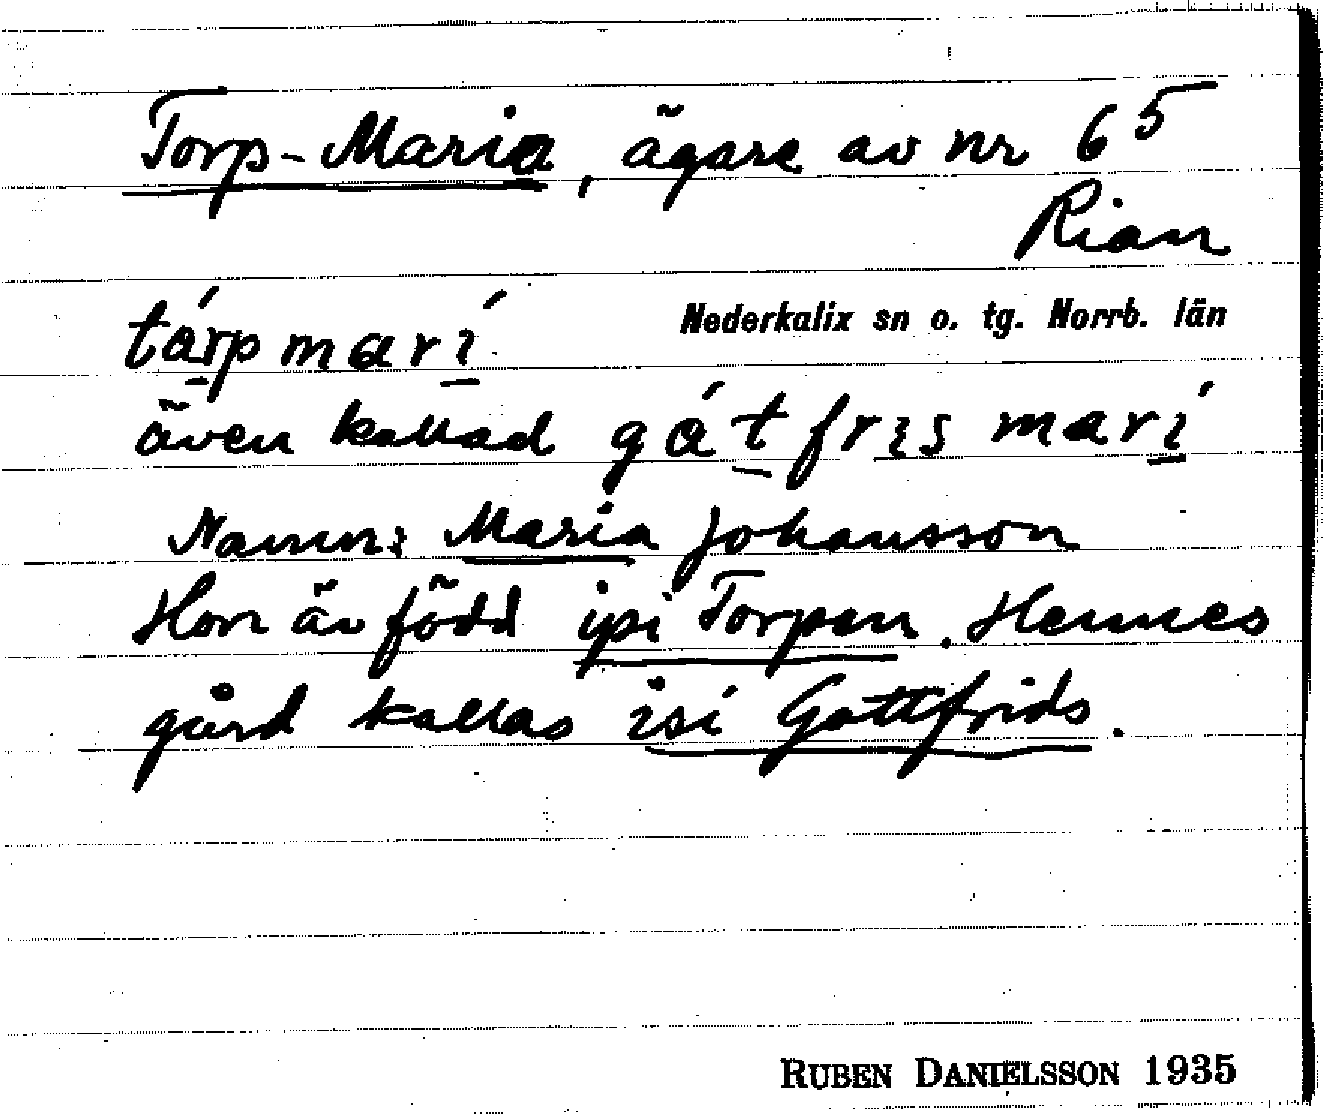 Torp-Maria, ägare av nr 6⁵
Rian
tárpmarí
Nederkalix sn o. tg. Norrb. län
även kallad gátfrɩs marí
Namn: Maria Johansson
Hon är född ipi Torpen. Hennes
gård kallas isi Gottfrids.
RUBEN DANIELSSON 1935